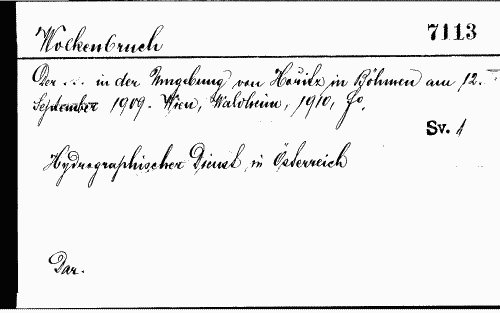 Wolkenbruch 7113
Der ... in der Umgebung von Hořitz in Böhmen am 12.
September 1909. Wien, Waldheim, 1910, fo.
Sv. 1
Hydrographischer Dienst in Österreich
Dar.